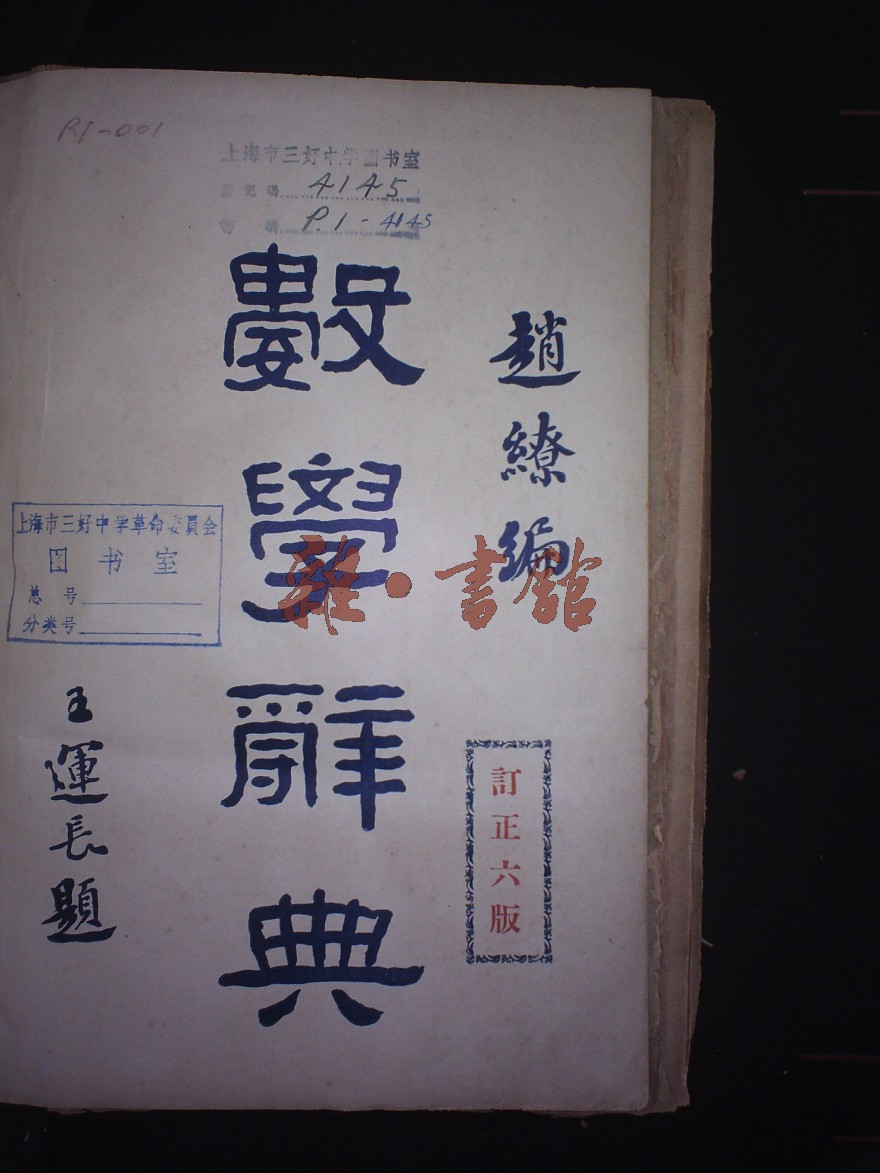 P1-001
上海市三好中学图书室
登记号 4145
P.1-4145
趙繚編
數學辭典
訂正六版
王運長題
上海市三好中学革命委員会
图书室
总号
分类号
雜·書館